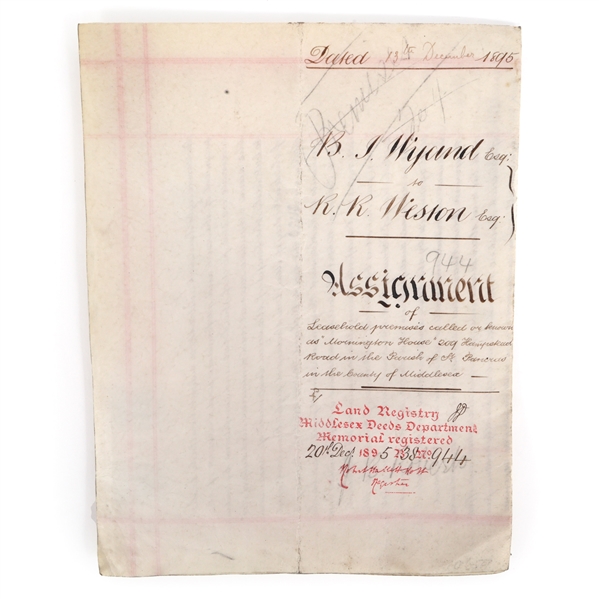 Dated 13th December 1895
704
B. J. Wyand Esq:
to
R. R. Weston Esq:
944
Assignment
of
Leasehold premises called or known
as 'Mornington House' 209 Hampstead
Road in the Parish of St. Pancras
in the County of Middlesex
Land Registry
Middlesex Deeds Department
Memorial registered
20th Decr. 1895 B. 38 No. 944
Registrar